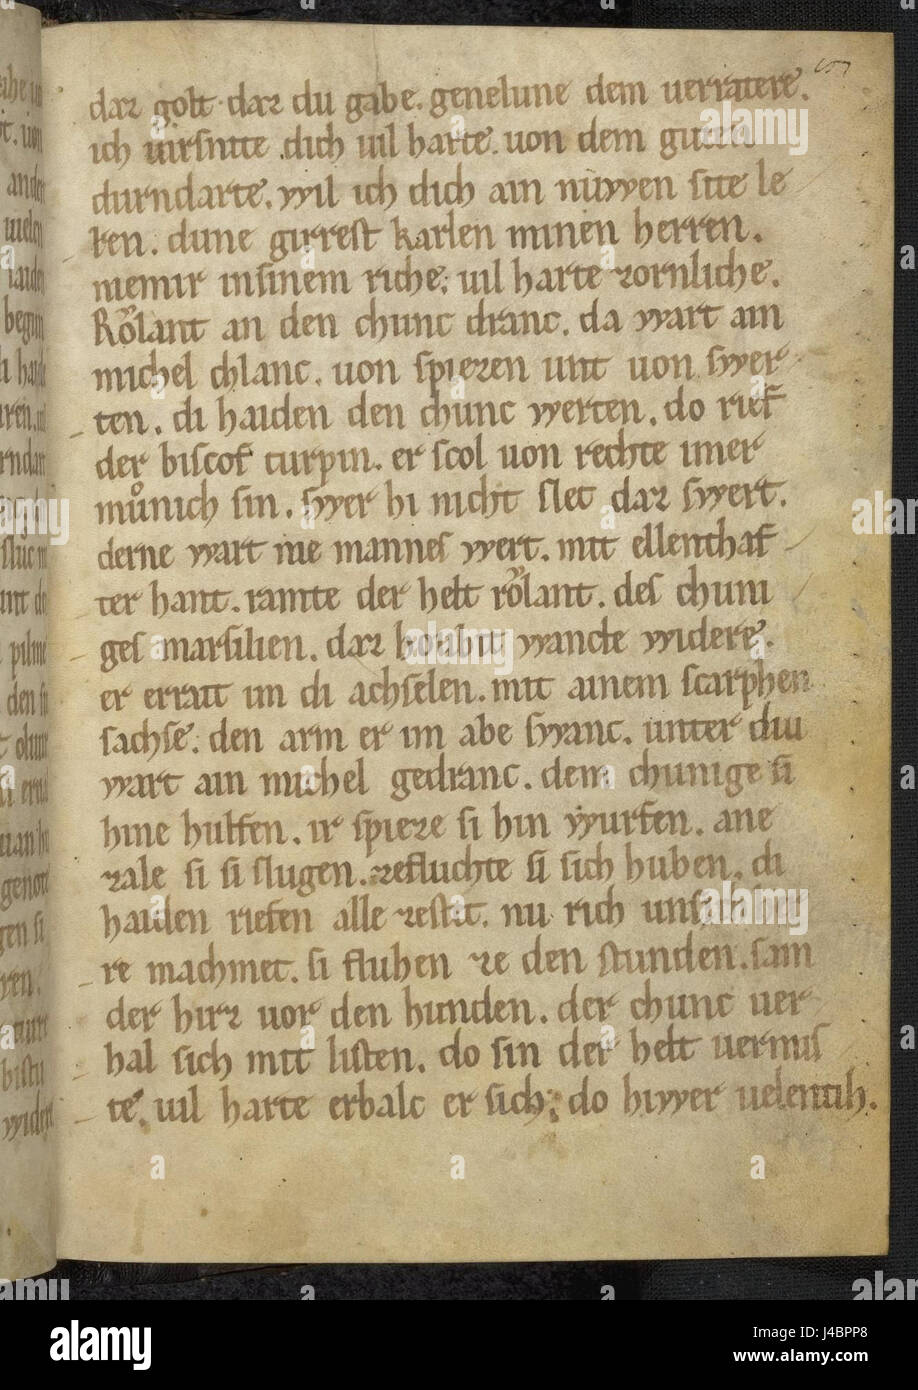 daz golt daz du gabe. genelune dem uerratere.
ich uirsnite .dich uil harte. uon dem guten
durndarte. wil ich dich ain nůwen site le
ren. dune girrest karlen minen herren.
niemir insinem riche; uil harte zornliche.
Rǒlant an den chunc dranc. da wart ain
michel chlanc. uon spiezen unt uon swer
ten. di haiden den chunc werten. do rief
der biscof turpin. er scol uon rechte imer
můnich sin. swer hi nicht slet daz swert.
derne wart nie mannes wert. mit ellenthaf
ter hant. ramte der helt rǒlant. des chuni
ges marsilien. daz houbit wancte widere.
er erratt im di achselen. mit ainem scarphen
sachse. den arm er im abe swanc. unter diu
wart ain michel gedranc. dem chunige si
hine hulfen. ir spieze si hin wurfen. ane
zale si si slugen. zefluchte si sich huben. di
haiden riefen alle zestet. nu rich unsich her
re machmet. si fluhen ze den stunden. sam
der hirz uor den hunden. der chunc uer
hal sich mit listen. do sin der helt uermis
te. uil harte erbalc er sich; do hiwer uelentih.
alamy stock photo
J4BPP8
www.alamy.com